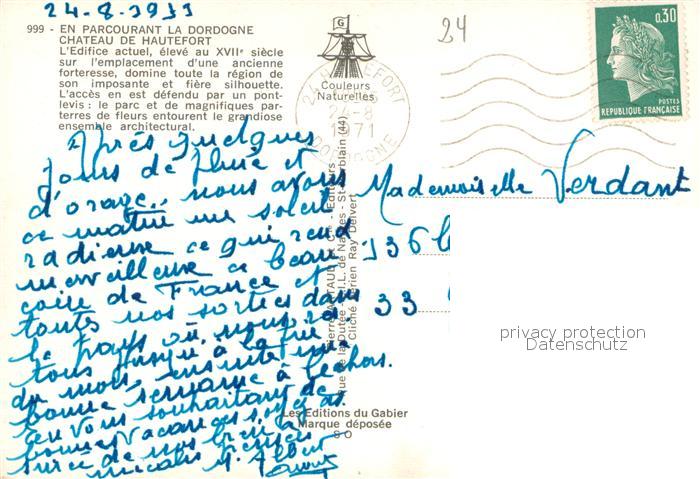 24-8-1971
999 - EN PARCOURANT LA DORDOGNE
CHATEAU DE HAUTEFORT
L'Edifice actuel, élevé au XVIIe siècle
sur l'emplacement d'une ancienne
forteresse, domine toute la région de
son imposante et fière silhouette.
L'accès en est défendu par un pont-
levis : le parc et de magnifiques par-
terres de fleurs entourent le grandiose
ensemble architectural.
G
Couleurs
Naturelles
24 HAUTEFORT
24-8
1971
DORDOGNE
24
0.30
POSTES
REPUBLIQUE FRANÇAISE
Après quelques
jours de pluie et
d'orage.. nous avons
ce matin un soleil
radieux ce qui rend
merveilleux ce beau
coin de France et
toutes nos sorties dans
le pays où nous
tous jusqu'à la fin
du mois, ensuite une
bonne semaine à
En vous souhaitant de
bonnes vacances soyez
de nos
amicales pensées
M. Albert
Mademoiselle Verdant
136
33
Editeurs
de Nantes - St-Herblain (44)
Cliché aérien Ray Delvert
Les Editions du Gabier
Marque déposée
privacy protection
Datenschutz